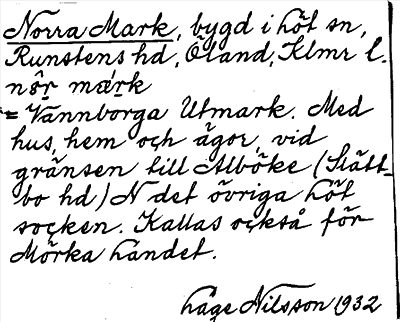 Norra Mark, bygd i höt sn,
Runstens hd, Öland, Klmr l.
nör märk
= Vannborga Utmark. Med
hus, hem och ägor, vid
gränsen till Alböke (Slätt-
bo hd) N det övriga höt
socken. Kallas också för
Mörka landet.
Nilsson 1932